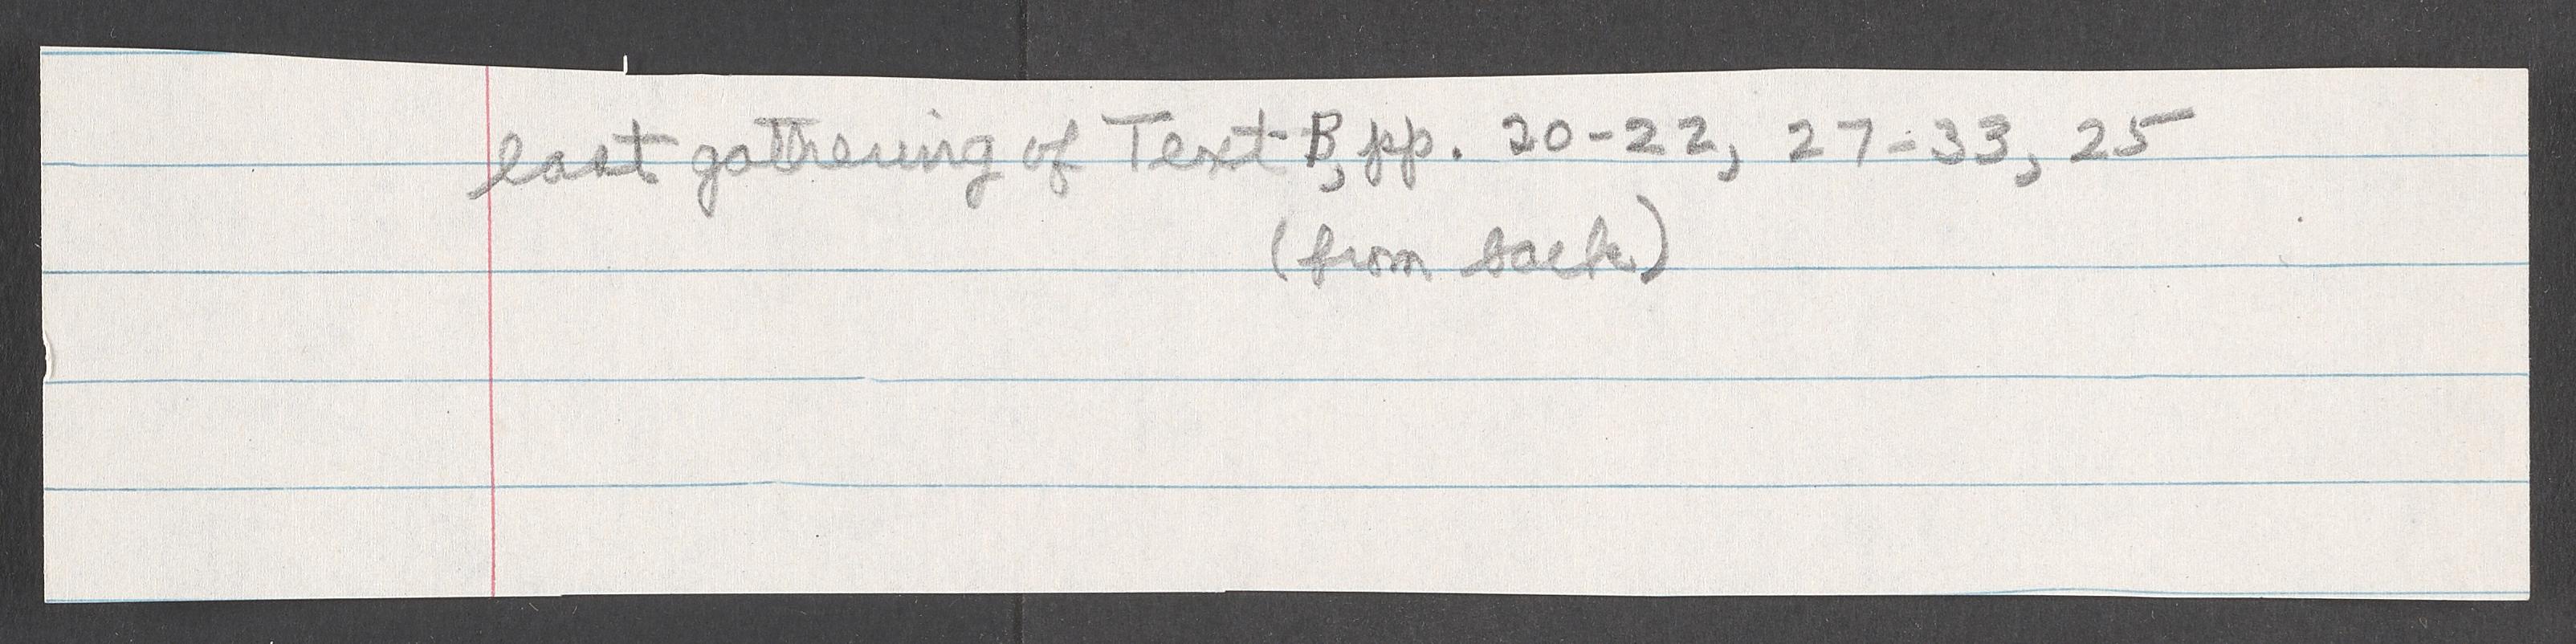 last gathering of Text B, pp. 20-22, 27-33, 25
(from back)